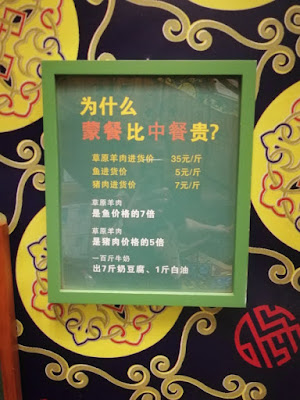 为什么
蒙餐比中餐贵?
草原羊肉进货价 35元/斤
鱼进货价 5元/斤
猪肉进货价 7元/斤
草原羊肉
是鱼价格的7倍
草原羊肉
是猪肉价格的5倍
一百斤牛奶
出7斤奶豆腐、1斤白油